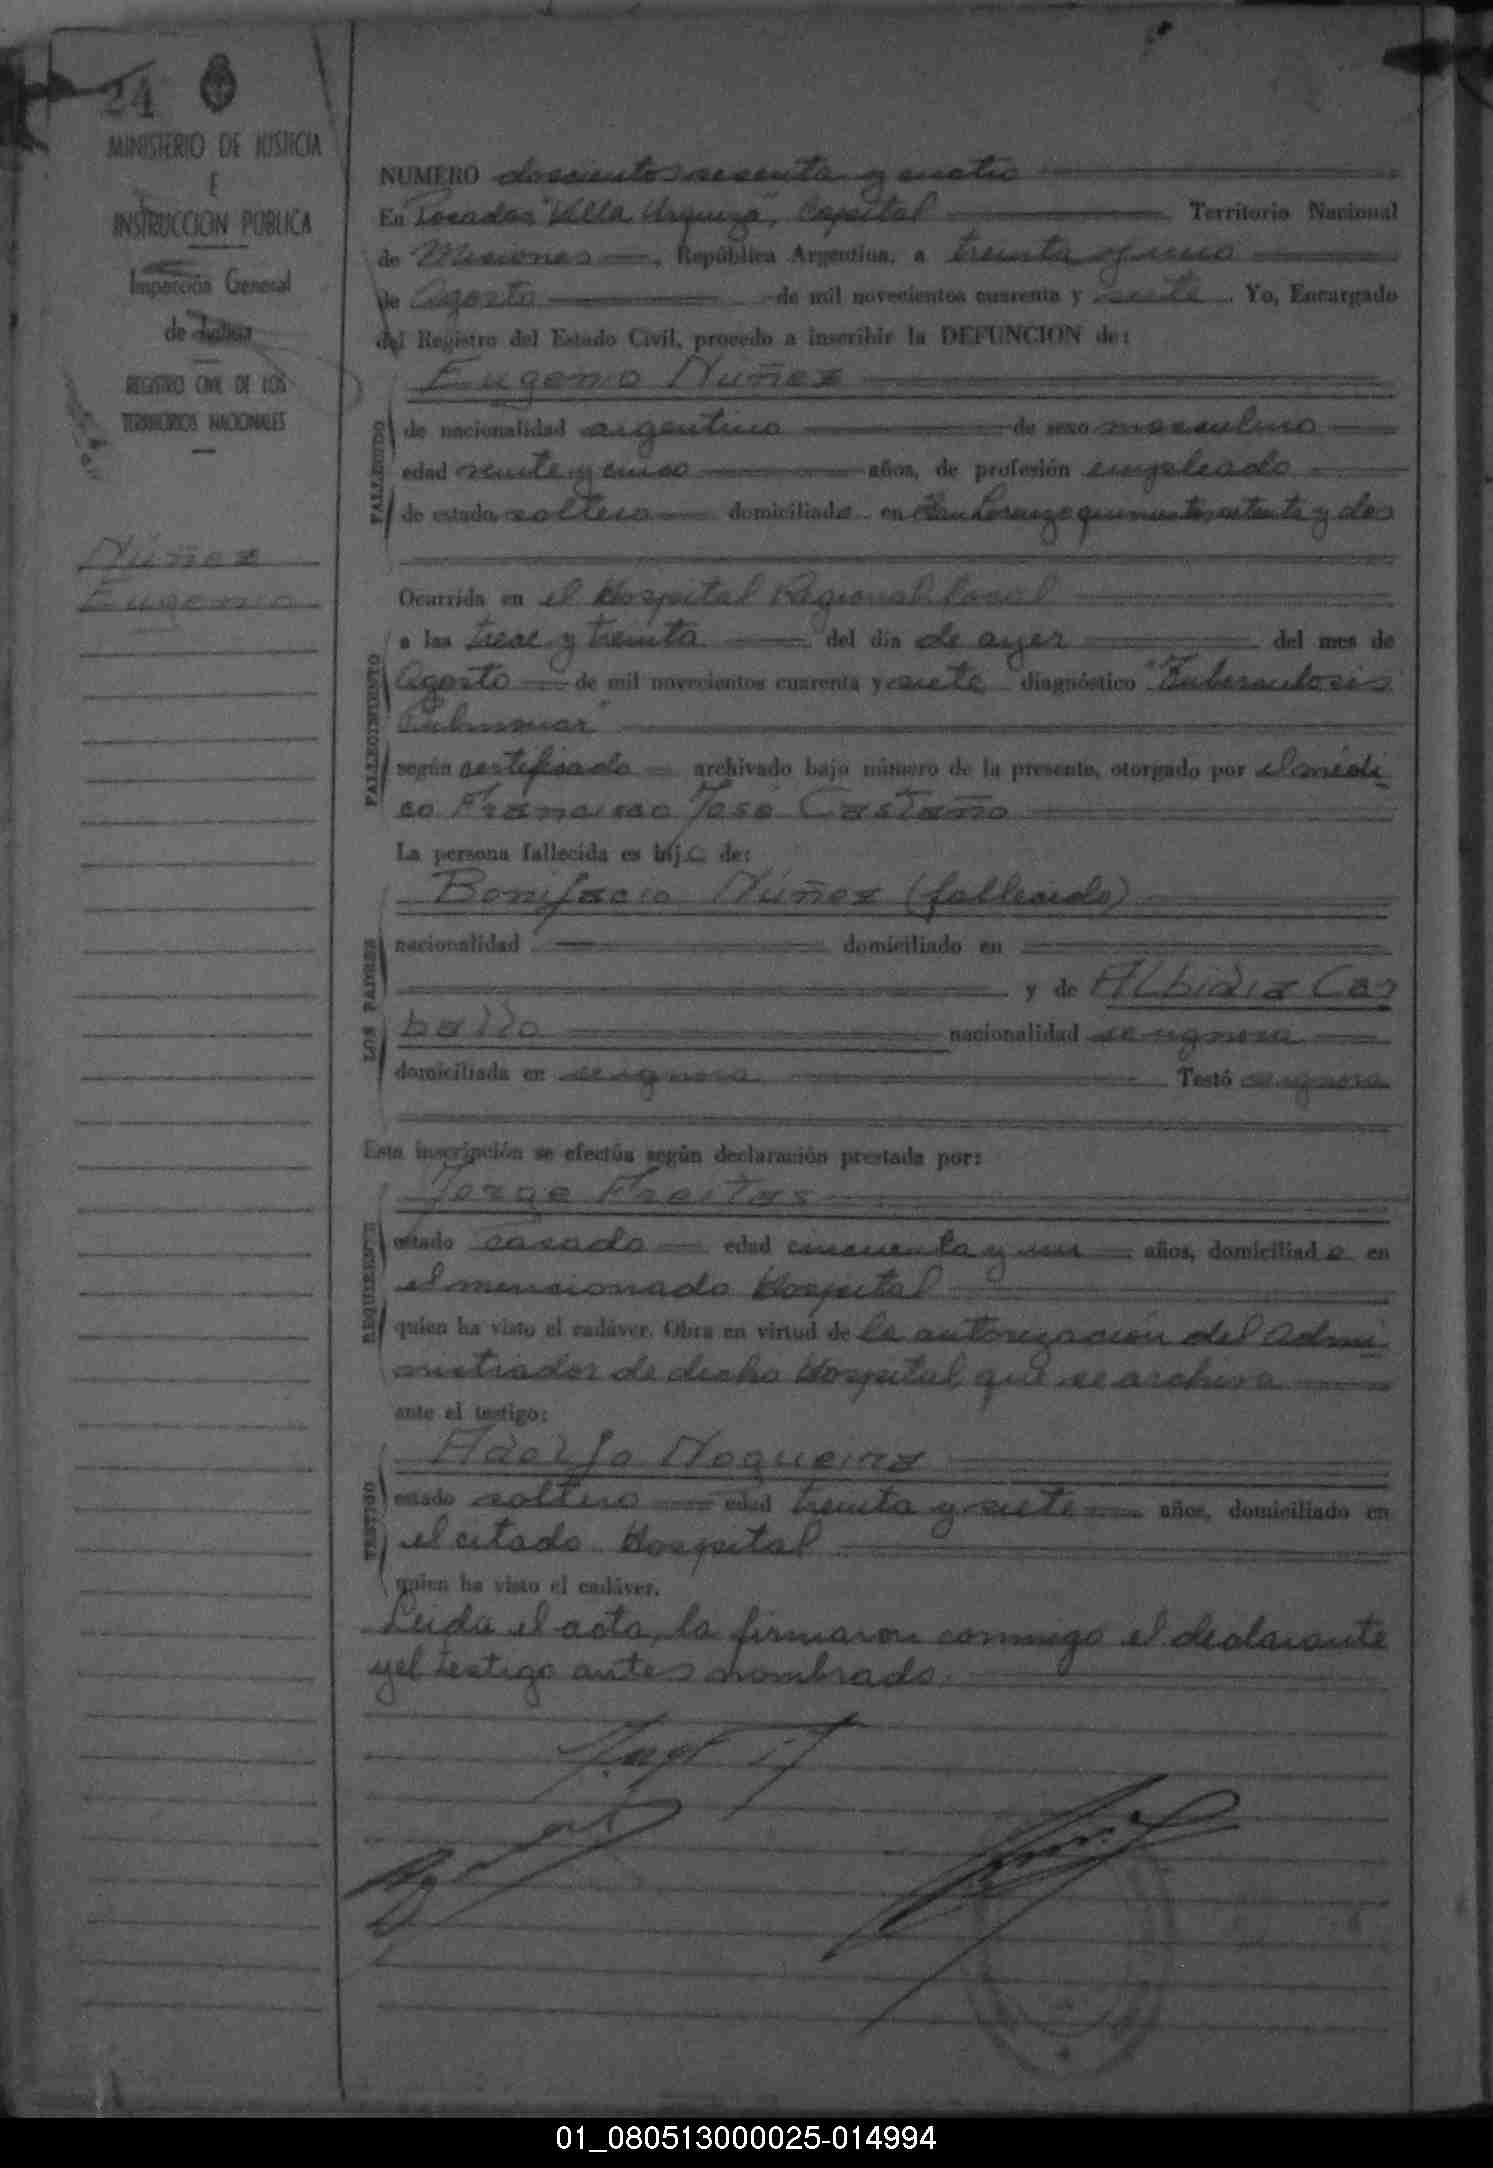 24
MINISTERIO DE JUSTICIA
E
INSTRUCCION PUBLICA
Inspección General
de Justicia
REGISTRO CIVIL DE LOS
TERRITORIOS NACIONALES
Núñez
Eugenio
NUMERO doscientos sesenta y cuatro
En Posadas "Villa Urquiza", Capital Territorio Nacional
de Misiones, República Argentina, a treinta y uno
de Agosto de mil novecientos cuarenta y siete. Yo, Encargado
del Registro del Estado Civil, procedo a inscribir la DEFUNCION de:
Eugenio Nuñez
FALLECIDO
de nacionalidad argentino de sexo masculino
edad veinte y cinco años, de profesión empleado
de estado soltero domiciliado en San Lorenzo quinientos setenta y dos
Ocurrida en el Hospital Regional local
FALLECIMIENTO
a las trece y treinta del día de ayer del mes de
Agosto de mil novecientos cuarenta y siete diagnóstico "Tuberculosis
Pulmonar"
según certificado archivado bajo número de la presente, otorgado por el médi
co Francisco José Castaño
La persona fallecida es hijo de:
LOS PADRES
Bonifacio Núñez (fallecido)
nacionalidad domiciliado en
y de Albidia Car
ballo nacionalidad se ignora
domiciliada en se ignora Testó se ignora
Esta inscripción se efectúa según declaración prestada por:
REQUIRENTE
Jorge Freitas
estado casado edad cincuenta y un años, domiciliado en
el mencionado Hospital
quien ha visto el cadáver. Obra en virtud de la autorización del Admi
nistrador de dicho Hospital que se archiva
ante el testigo:
TESTIGO
Adolfo Nogueira
estado soltero edad treinta y siete años, domiciliado en
el citado Hospital
quien ha visto el cadáver.
Leida el acta, la firmaron conmigo el declarante
y el testigo antes nombrado.
01_080513000025-014994